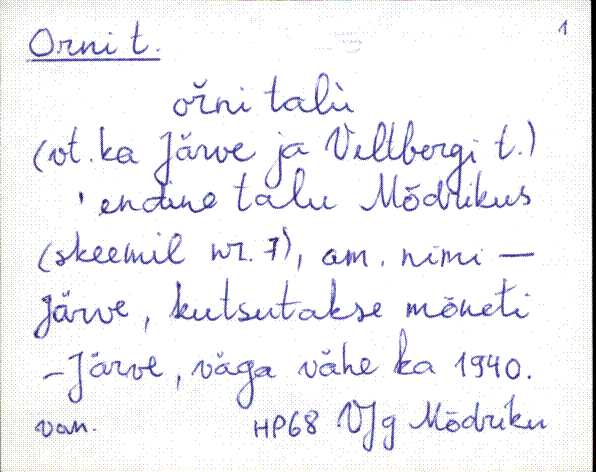 1
Orni t.
ořni talù
(vt. ka Järve ja Veltbergi t.)
'endine talu Mõdrikus
(skeemil nr. 7), am. nimi —
Järve, kutsutakse mõneti
– Järve, väga vähe ka 1940.
van. HP68 VJg Mõdriku